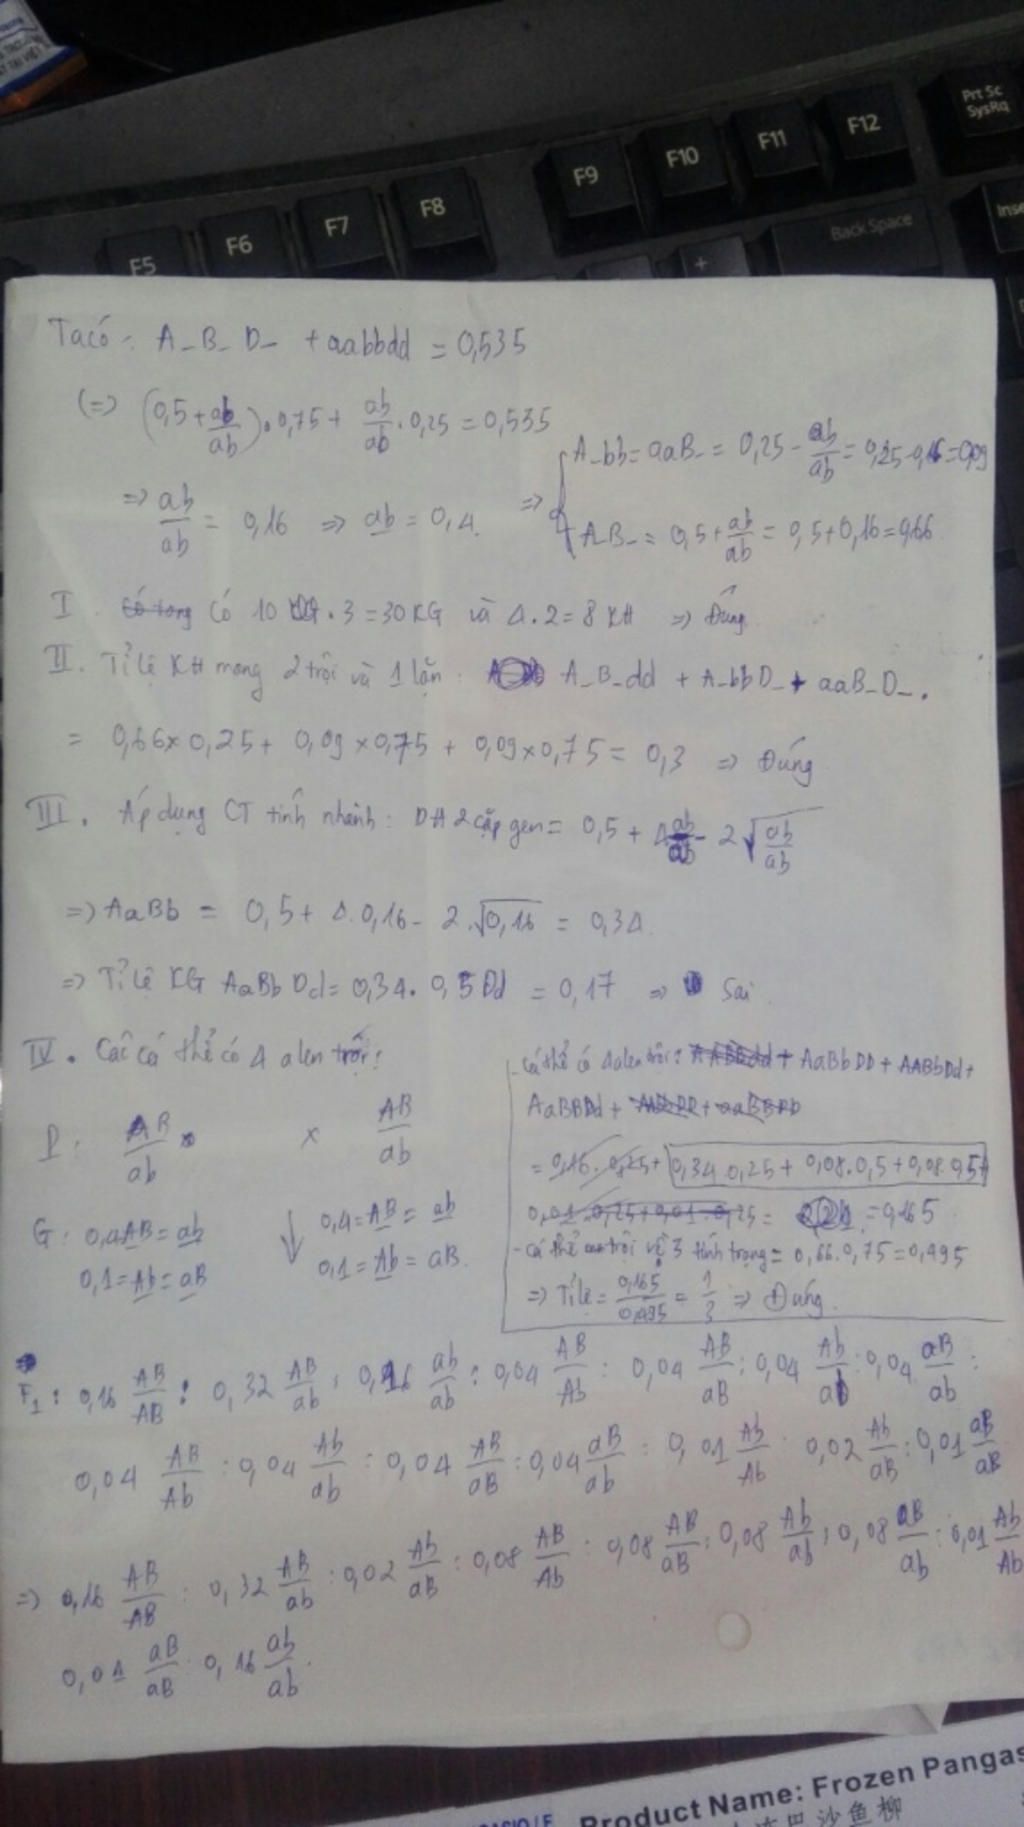 F5 F6 F7 F8 F9 F10 F11 F12 Prt Sc SysRq
Back Space
+
Ta có: A_B_D_ + aabbdd = 0,535
(=> (0,5 + ab/ab).0,75 + ab/ab . 0,25 = 0,535
=> ab/ab = 0,16 => ab = 0,4.
=> { A_bb = aaB_ = 0,25 - ab/ab = 0,25-0,16=0,09
A_B_ = 0,5 + ab/ab = 0,5+0,16=0,66
I. Có 10 KG . 3 = 30 KG và 4 . 2 = 8 KH => Đúng
II. Tỉ lệ KH mang 2 trội và 1 lặn: A_B_dd + A_bbD_ + aaB_D_.
= 0,66 x 0,25 + 0,09 x 0,75 + 0,09 x 0,75 = 0,3 => Đúng
III. Áp dụng CT tính nhanh: DH 2 cặp gen = 0,5 + 4 ab/ab - 2 √(ab/ab)
=> AaBb = 0,5 + 4.0,16 - 2.√0,16 = 0,34.
=> Tỉ lệ KG AaBbDd = 0,34. 0,5 Dd = 0,17 => Sai.
IV. Các cá thể có 4 alen trội:
P: AB/ab x AB/ab
G: 0,4 AB = ab
0,1 = Ab = aB
↓
0,4 = AB = ab
0,1 = Ab = aB.
- cá thể có 4 alen trội: AABBdd + AaBbDD + AABbDd +
AaBBDd +
= 0,16 . 0,25 + 0,34.0,25 + 0,08.0,5 + 0,08.0,5 +
0,01 . 0,25 + 0,01 . 0,25 = = 0,165
- cá thể trội về 3 tính trạng = 0,66.0,75 = 0,495
=> Tỉ lệ = 0,165/0,495 = 1/3 => Đúng.
F1: 0,16 AB/AB : 0,32 AB/ab : 0,16 ab/ab : 0,04 AB/Ab : 0,04 AB/aB : 0,04 Ab/ab : 0,04 aB/ab :
0,04 AB/Ab : 0,04 Ab/ab : 0,04 AB/aB : 0,04 aB/ab : 0,01 Ab/Ab : 0,02 Ab/aB : 0,01 aB/aB
=> 0,16 AB/AB : 0,32 AB/ab : 0,02 Ab/aB : 0,08 AB/Ab : 0,08 AB/aB : 0,08 Ab/ab : 0,08 aB/ab : 0,01 Ab/Ab
0,01 aB/aB : 0,16 ab/ab.
Product Name: Frozen Pangas
沙鱼柳